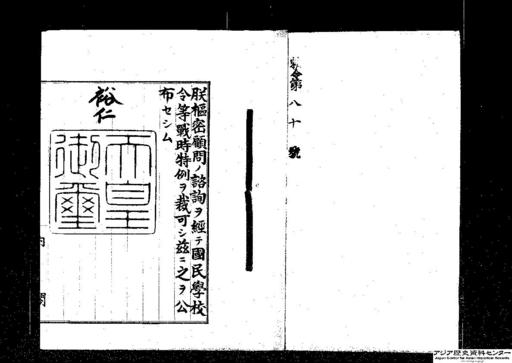 勅令第八十號
朕樞密顧問ノ諮詢ヲ經テ國民學校
令等戰時特例ヲ裁可シ茲ニ之ヲ公
布セシム
裕仁
天皇
御璽
内閣
アジア歴史資料センター
Japan Center for Asian Historical Records